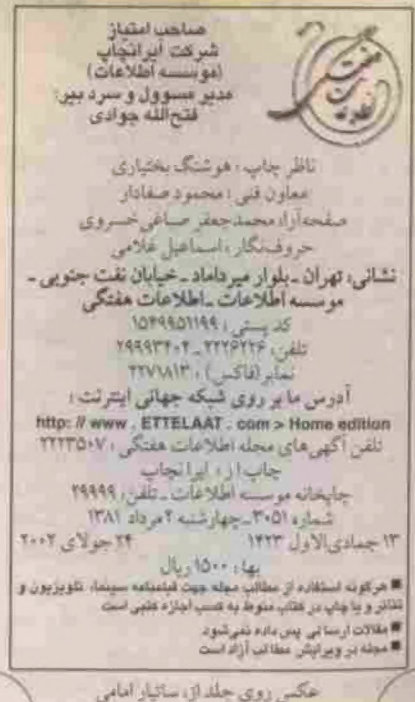 صاحب امتیاز
شرکت ایرانچاپ
(موسسه اطلاعات)
مدیر مسوول و سردبیر:
فتح‌الله جوادی
هفتگی
ناظر چاپ: هوشنگ بختیاری
معاون فنی: محمود صفادار
صفحه‌آرا: محمدجعفر صاعی‌خسروی
حروف‌نگار: اسماعیل غلامی
نشانی: تهران ـ بلوار میرداماد ـ خیابان نفت جنوبی ـ
موسسه اطلاعات ـ اطلاعات هفتگی
کد پستی: ۱۵۴۹۹۵۱۱۹۹
تلفن: ۲۲۲۶۲۲۶ ـ ۲۹۹۹۳۴۰۲
نمابر (فاکس): ۲۲۷۱۸۱۳
آدرس ما بر روی شبکه جهانی اینترنت:
http: // www . ETTELAAT . com > Home edition
تلفن آگهی‌های مجله اطلاعات هفتگی: ۲۲۲۳۵۰۷
چاپ از: ایرانچاپ
چاپخانه موسسه اطلاعات ـ تلفن: ۲۹۹۹۹
شماره ۳۰۵۱ ـ چهارشنبه ۲ مرداد ۱۳۸۱
۱۳ جمادی‌الاول ۱۴۲۳ ۲۴ جولای ۲۰۰۲
بهاء: ۱۵۰۰ ریال
■ هرگونه استفاده از مطالب مجله جهت فیلمنامه سینما، تلویزیون و
تئاتر و یا چاپ در کتاب منوط به کسب اجازه کتبی است
■ مقالات ارسالی پس داده نمی‌شود
■ مجله در ویرایش مطالب آزاد است
عکس روی جلد از: ساتیار امامی